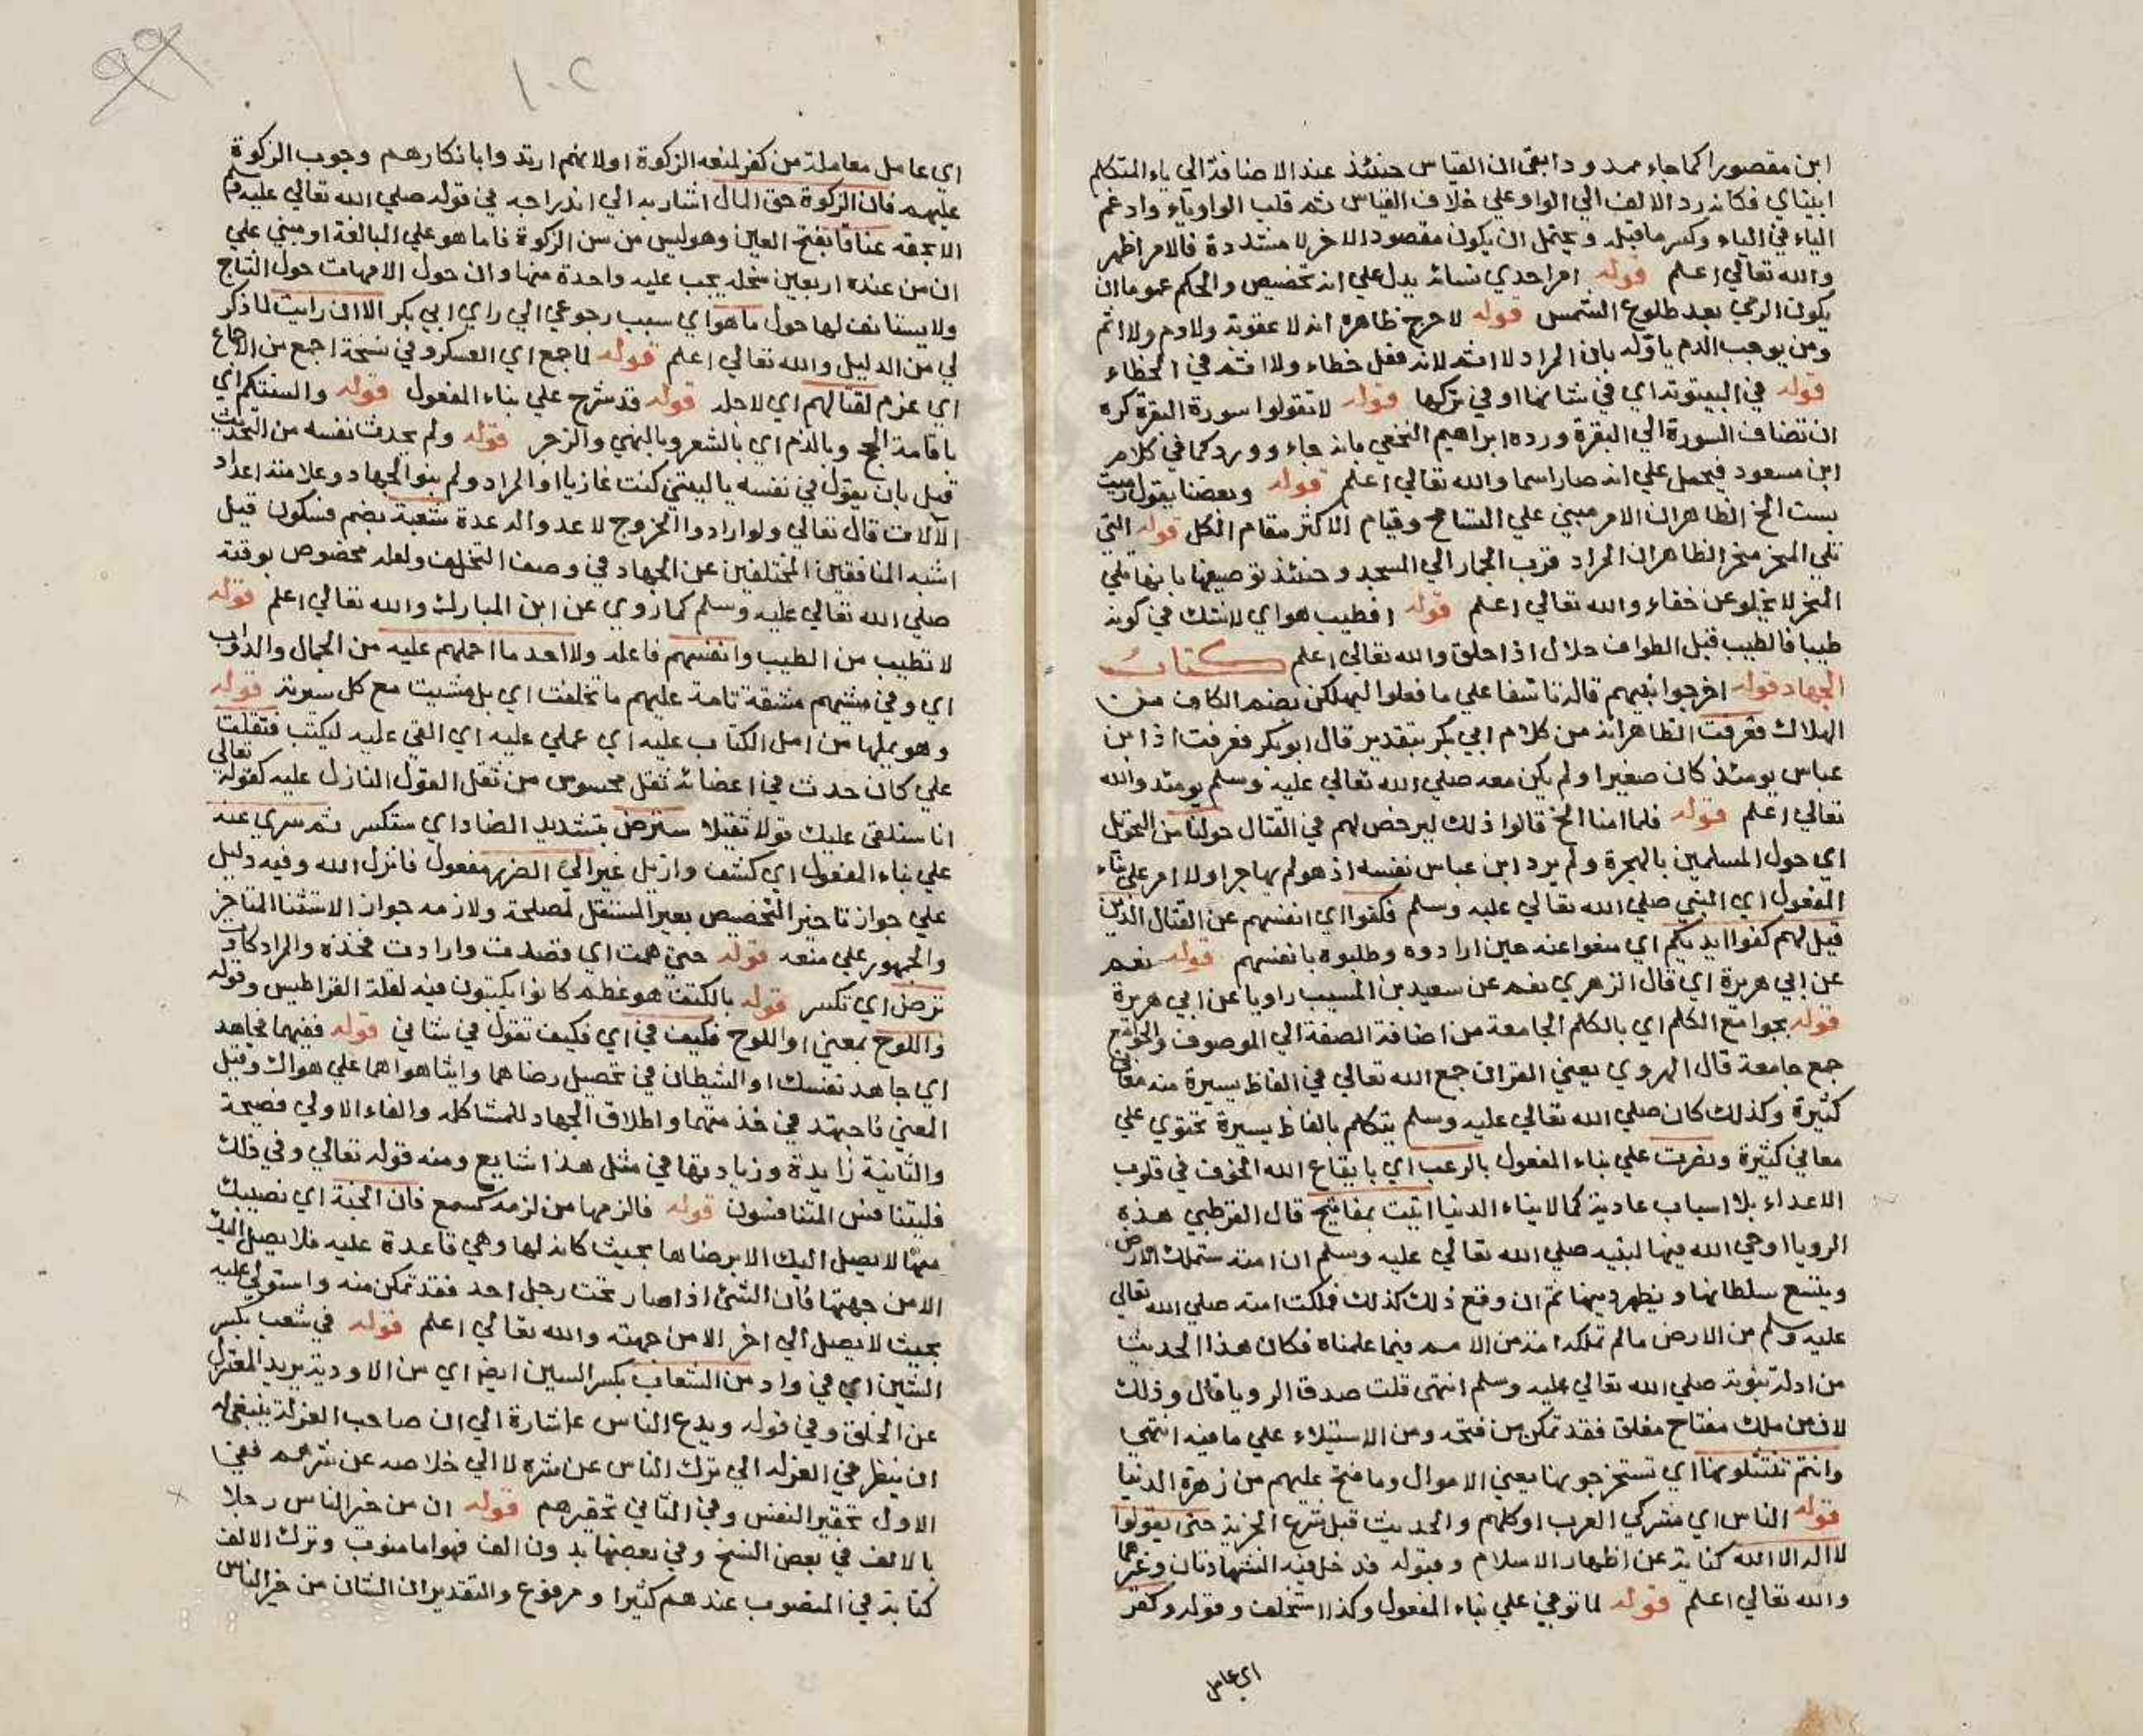 ابن مقصورا كما جاء ممدودا بقي ان القياس حنئذ عند الاضافة الي ياء المتكلم
ابناي فكانه رد الالف الي الواو علي خلاف القياس ثم قلب الواو ياء وادغم
الياء في الياء وكسر ما قبله ويحتمل ان يكون مقصود الاخر لا مشددة فالامر اظهر
والله تعالي اعلم قوله امر احدي نسائه يدل علي انه تخصيص والحكم عموما ان
يكون الرمي بعد طلوع الشمس قوله لا حرج ظاهره انه لا عقوبة ولا دم ولا اثم
ومن يوجب الدم ياوله بان المراد لا اثم لانه فعل خطاء ولا اثم في الخطاء
قوله في البيتوتة اي في شانها او في تركها قوله لا تقولوا سورة البقرة كره
ان تضاف السورة الي البقرة ورده ابراهيم النخعي بانه جاء وورد كما في كلام
ابن مسعود فيحمل علي انه صار اسما والله تعالي اعلم قوله وبعضنا يقول رميت
بست الخ الظاهر ان الامر مبني علي التسامح وقيام الاكثر مقام الكل قوله التي
تلي المنحر منحر الظاهر ان المراد قرب الجمار الي المسجد وحنئذ توصيفها بانها تلي
المنحر لا يخلو عن خفاء والله تعالي اعلم قوله افطيب هو اي لا شك في كونه
طيبا فالطيب قبل الطواف حلال اذا حلق والله تعالي اعلم كتاب
الجهاد قوله اخرجوا نبيهم قاله تاسفا علي ما فعلوا ليهلكن بضم الكاف من
الهلاك فعرفت الظاهر انه من كلام ابي بكر بتقدير قال ابو بكر فعرفت اذ ابن
عباس يومئذ كان صغيرا ولم يكن معه صلي الله تعالي عليه وسلم يومئذ والله
تعالي اعلم قوله فلما امنا الخ قالوا ذلك ليرخص لهم في القتال حولنا من التحويل
اي حول المسلمين بالهجرة ولم يرد ابن عباس نفسه اذ هو لم يهاجر اولا امر علي بناء
المفعول اي النبي صلي الله تعالي عليه وسلم فكفوا اي انفسهم عن القتال الذين
قيل لهم كفوا ايديكم اي منعوا عنه حين ارادوه وطلبوه بانفسهم قوله نعم
عن ابي هريرة اي قال الزهري نعم عن سعيد بن المسيب راويا عن ابي هريرة
قوله بجوامع الكلم اي بالكلم الجامعة من اضافة الصفة الي الموصوف والجوامع
جمع جامعة قال الهروي يعني القران جمع الله تعالي في الفاظ يسيرة منه معاني
كثيرة وكذلك كان صلي الله تعالي عليه وسلم يتكلم بالفاظ يسيرة تحتوي علي
معاني كثيرة ونصرت علي بناء المفعول بالرعب اي بايقاع الله الخوف في قلوب
الاعداء بلا اسباب عادية كما لابناء الدنيا اتيت بمفاتيح قال القرطبي هذه
الرويا اوحي الله فيها لنبيه صلي الله تعالي عليه وسلم ان امته ستملك الارض
ويتسع سلطانها ويظهر دينها ثم ان وقع ذلك كذلك فملكت امته صلي الله تعالي
عليه وسلم من الارض مالم تملكه امة من الامم فيما علمناه فكان هذا الحديث
من ادلة نبوته صلي الله تعالي عليه وسلم انتهي قلت صدق الرويا قال وذلك
لان من ملك مفتاح مغلق فقد تمكن من فتحه ومن الاستيلاء علي ما فيه انتهي
وانتم تنتثلونها اي تستخرجونها يعني الاموال وما فتح عليهم من زهرة الدنيا
قوله الناس اي مشركي العرب او كلهم والحديث قبل شرع الجزية حتي يقولوا
لا اله الا الله كناية عن اظهار الاسلام وقبوله فدخل فيه الشهادتان وغيرهما
والله تعالي اعلم قوله لما توفي علي بناء المفعول وكذا استخلف وقوله وكفر
اي عامل
١٠٢
٩٩
اي عامل معاملة من كفر لمنعه الزكوة او لانهم ارتدوا بانكارهم وجوب الزكوة
عليهم فان الزكوة حق المال اشار به الي اندراجه في قوله صلي الله تعالي عليه وسلم
الا بحقه عناقا بفتح العين وهو ليس من سن الزكوة فاما هو علي المبالغة او مبني علي
ان من عنده اربعين سخلة يجب عليه واحدة منها وان حول الامهات حول النتاج
ولا يستانف لها حول ما هو اي سبب رجوعي الي راي ابي بكر الا ان رايت لما ذكر
لي من الدليل والله تعالي اعلم قوله لما جمع اي العسكر وفي نسخة اجمع من الاجماع
اي عزم لقتالهم اي لاجله قوله قد شرح علي بناء المفعول قوله والسنتكم اي
باقامة الحجج وبالذم اي بالشعر وبالنهي والزجر قوله ولم يحدث نفسه من التحديث
قيل بان يقول في نفسه يا ليتني كنت غازيا او المراد ولم ينو الجهاد وعلامته اعداد
الآلات قال تعالي ولو ارادوا الخروج لاعدوا له عدة شعبة بضم فسكون قيل
اشبه المنافقين المختلفين عن الجهاد في وصف التخلف ولعله مخصوص بوقته
صلي الله تعالي عليه وسلم كما روي عن ابن المبارك والله تعالي اعلم قوله
لا تطيب من الطيب وانفسهم فاعله ولا اجد ما احملهم عليه من الجمال والدواب
اي وفي مشيهم مشقة تامة عليهم ما تخلفت اي بل مشيت مع كل سرية قوله
وهو يملها من امل الكتاب عليه اي عملي عليه اي القي عليه ليكتب فثقلت
علي كان حدث في اعضائه ثقل محسوس من ثقل القول النازل عليه كقوله تعالي
انا سنلقي عليك قولا ثقيلا سترض بتشديد الضاد اي ستكسر ثم سري عنه
علي بناء المفعول اي كشف وازيل غير اولي الضرر مفعول فانزل الله وفيه دليل
علي جواز تاخير التخصيص بغير المستقل لمصلحة ولازمه جواز الاستثنا المتاخر
والجمهور علي منعه قوله حتي همت اي قصدت وارادت فخذه والمراد كادت
ترض اي تكسر قوله بالكتف هو عظم كانوا يكتبون فيه لقلة القراطيس وقوله
واللوح بمعني او اللوح فكيف في اي فكيف تقول في شاني قوله ففيهما فجاهد
اي جاهد نفسك او الشيطان في تحصيل رضاهما وايثار هواهما علي هواك وقيل
المعني فاجتهد في خدمتهما واطلاق الجهاد للمشاكلة والفاء الاولي فصيحة
والثانية زايدة وزيادتها في مثل هذا شايع ومنه قوله تعالي وفي ذلك
فليتنافس المتنافسون قوله فالزمها من لزمه كسمع فان الجنة اي نصيبك
منها لا يصل اليك الا برضاها بحيث كانه لها وهي قاعدة عليه فلا يصل اليك
الا من جهتها فان الشئ اذا صار تحت رجل احد فقد تمكن منه واستولي عليه
بحيث لا يصل الي اخر الا من جهته والله تعالي اعلم قوله في شعب بكسر
الشين اي في واد من الشعاب بكسر السين ايضا اي من الاودية يريد المعتزل
عن الخلق وفي قوله ويدع الناس اشارة الي ان صاحب العزلة ينبغي له
ان ينظر في العزلة الي ترك الناس عن شره لا الي خلاصه عن شرهم ففي
الاول تحقير النفس وفي الثاني تحقيرهم قوله ان من خير الناس رجلا
بالالف في بعض النسخ وفي بعضها بدون الف فهو اما منصوب وترك الالف
كتابة في المنصوب عندهم كثيرا ومرفوع والتقدير ان الشان من خير الناس